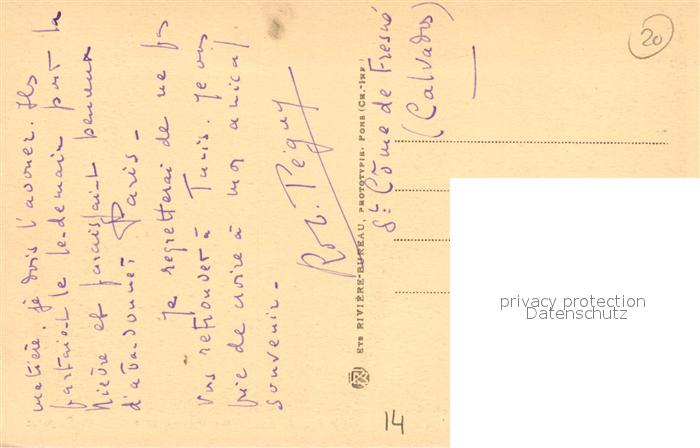 matière, je dois l'avouer. Ils
partaient le lendemain pour la
Nièvre et paraissaient peureux
d'abandonner Paris -
Je regretterai de ne pas
vous retrouver à Tunis. Je vous
prie de croire à mon amical
souvenir -
Rob. Péguy
Ets RIVIÈRE-BUREAU, PROTOTYPIE. PONS (CH.-INF.)
St Côme de Fresné
(Calvados)
20
14
privacy protection
Datenschutz